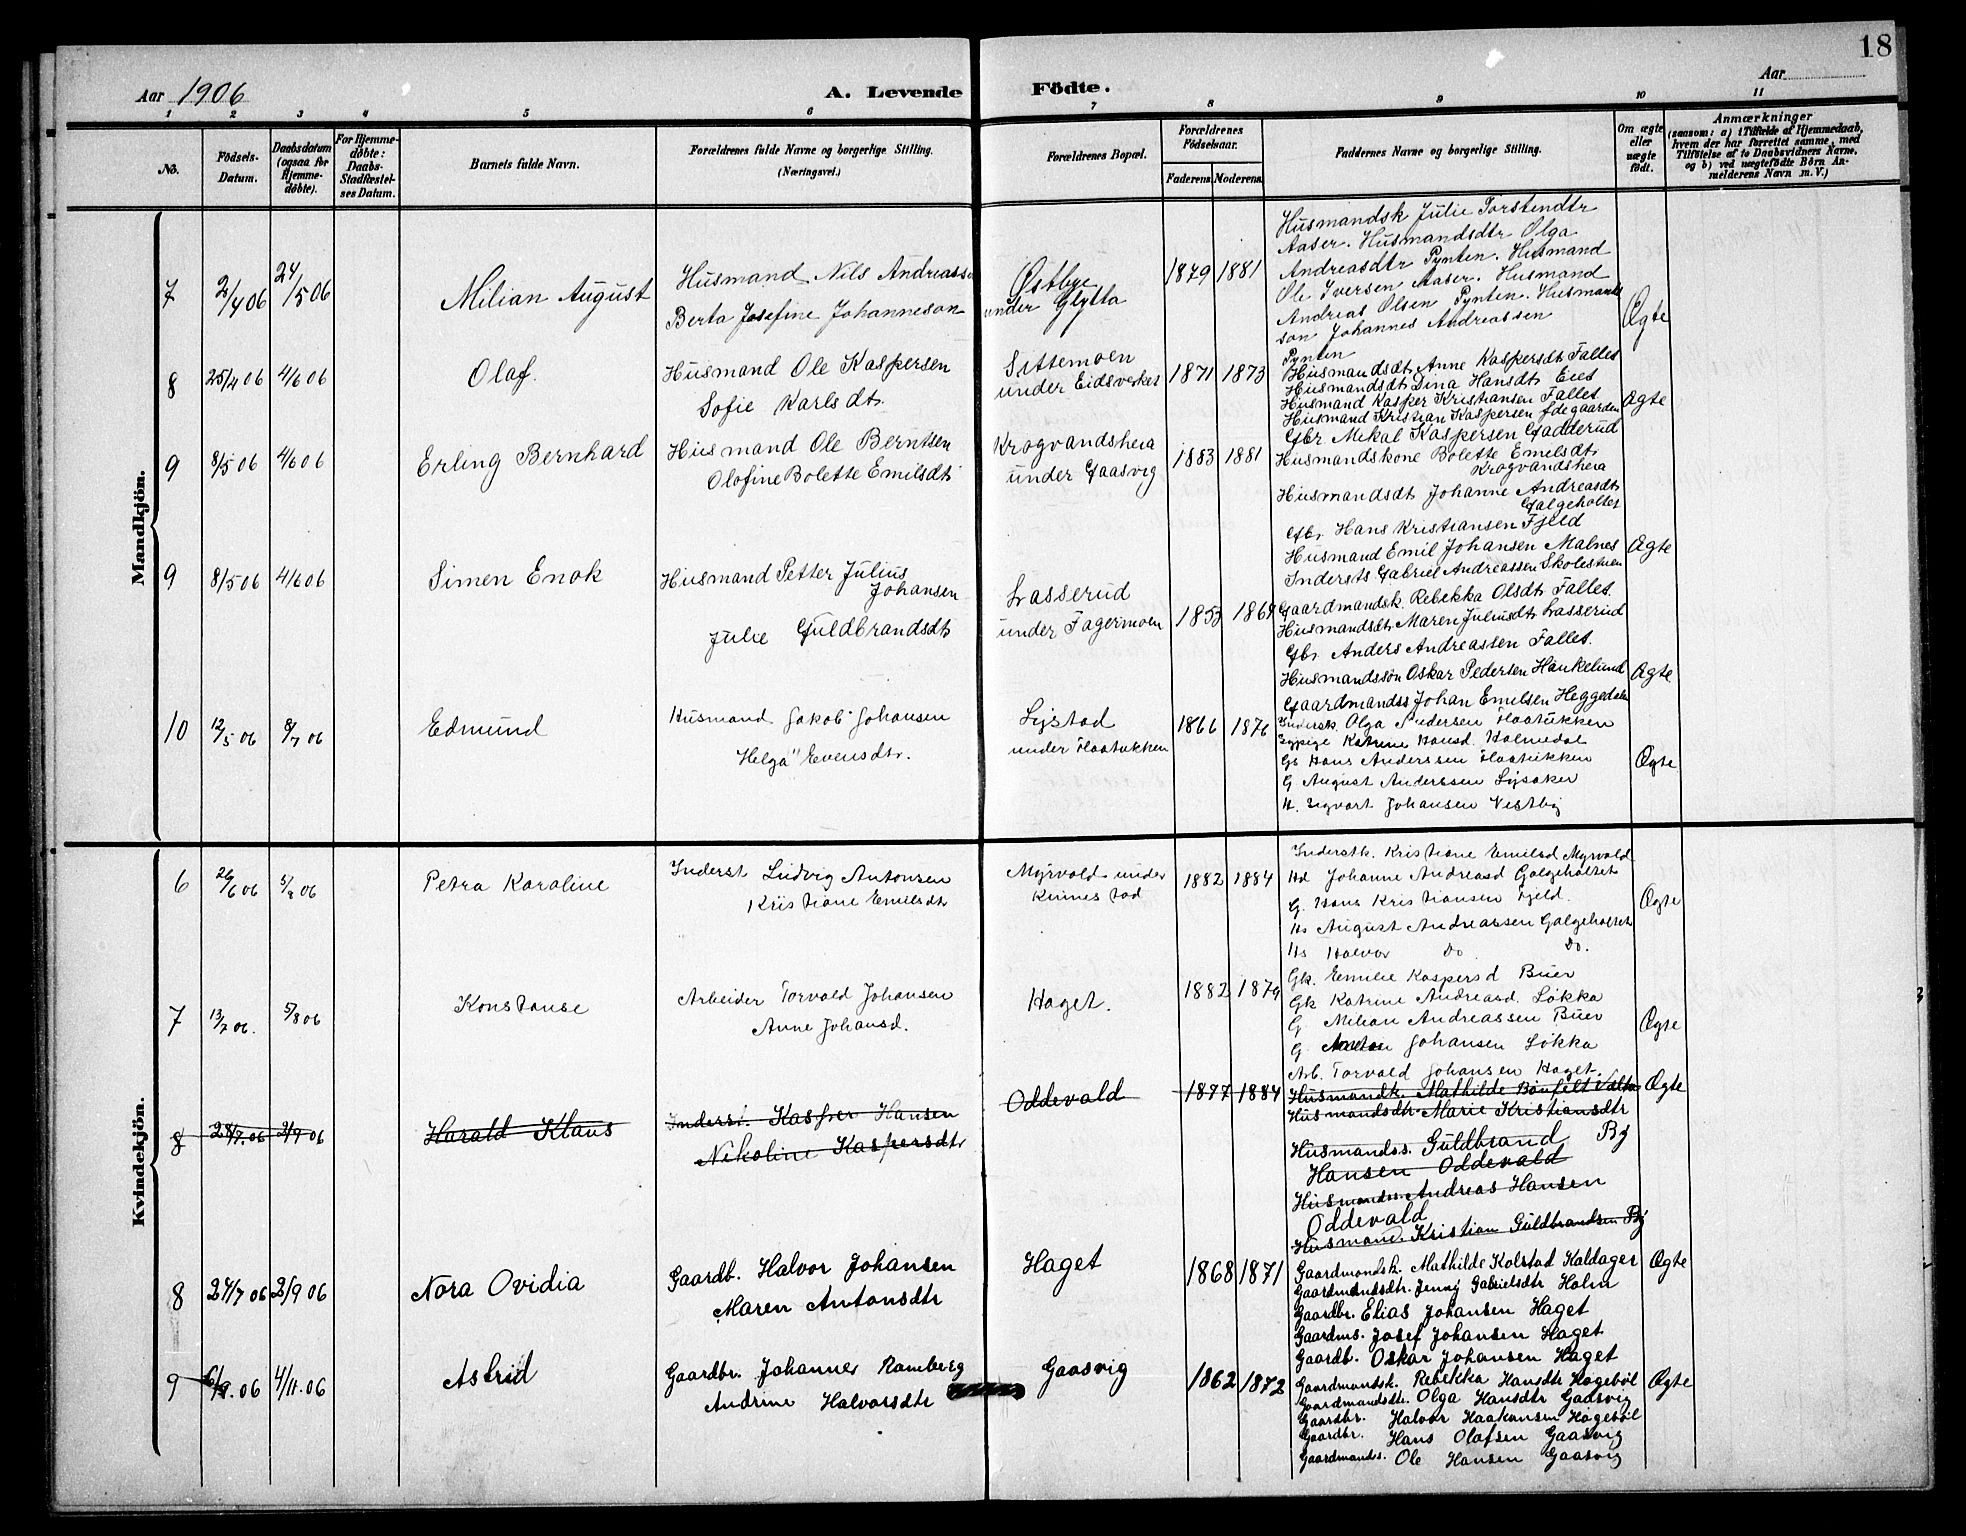 18
Aar 1906
A. Levende Födte.
Aar
1 2 3 4 5 6 7 8 9 10 11
No.
Födsels-Datum.
Daabsdatum (ogsaa for Hjemme-döbte).
For Hjemme-döbte: Daabs-Stadfæstel-ses Datum.
Barnets fulde Navn.
Forældrenes fulde Navne og borgerlige Stilling. (Næringsvei.)
Forældrenes Bopæl.
Forældrenes Födselsaar.
Faderens Moderens
Faddernes Navne og borgerlige Stilling.
Om ægte eller uægte födt.
Anmærkninger
(saasom: a) i Tilfælde af Hjemmedaab, hvem der har forrettet samme, med Tilföielse af to Daabsvidners Navne, og b) ved uægtefödte Börn Anmelderens Navn m. V.)
Mandkjön.
7 2/4 06 24/5 06 Milian August
Husmand Nils Andreass
Berta Josefine Johanneson
Østbye
under Glytta
1879 1881
Husmandsk Julie Torstendtr
Aaser. Husmandsdtr Olga
Andreasdtr Pynten. Husmand
Ole Iversen Aaser. Husmand
Andreas Olsen Pynten. Husmands
son Johannes Andreassen
Pynten
Ægte
8 25/4 06 4/6 06 Olaf.
Husmand Ole Kaspersen
Sofie Karlsdt.
Sittemoen
under Eidsverket
1871 1873
Husmandsdt. Anne Kaspersdt Fallet
Husmandsdt Dina Hansdt Eiet
Husmand Kasper Kristiansen Fallet
Husmand Kristian Kaspersen Ødegaarden
Gbr Mikal Kaspersen Gadderud
Ægte
9 8/5 06 4/6 06 Erling Bernhard
Husmand Ole Berntsen
Olofine Bolette Emilsdt
Krogvandsheia
under Gaasvig
1883 1881
Husmandskone Bolette Emilsdt
Krogvandsheia
Husmandsdt Johanne Andreasdt
Galgeholtet
Gbr. Hans Kristiansen Fjeld
Husmand Emil Johansen Malnes
Indersts Gabriel Andreassen Skolestuen
Ægte
9 8/5 06 4/6 06 Simen Enok
Husmand Petter Julius
Johansen
Julie Guldbrandsdt
Lasserud
under Fagermoen
1853 1869
Gaardmandsk. Rebekka Olsdt Fallet
Husmandsdt Maren Juliusdt Lasserud
Gbr Anders Andreassen Fallet.
Husmandsson Oskar Pedersen Haukelund
Gaardmandss Johan Emilsen Heggedalen
Ægte
10 12/5 06 8/7 06 Edmund
Husmand Jakob Johansen
Helga Evensdtr.
Lystad
under Flaatukken
1866 1876
Inderstk. Olga Pedersen Flaatukken
Sypige Katrine Hansd. Holmedal
Gs Hans Anderssen Flaatukken
G August Anderssen Lysaker
H. Sigvart Johansen Vestby
Ægte
Kvindekjön.
6 26/6 06 5/8 06 Petra Karoline
Inderst Ludvig Antonsen
Kristiane Emilsdtr
Myrvold under
Kinnestad
1882 1884
Inderstk. Kristiane Emilsd Myrvold
Hd Johanne Andreasd Galgeholtet
G. Hans Kristiansen Fjeld.
Hs August Andreassen Galgeholtet
Hs Halvor Do Do.
Ægte
7 13/7 06. 5/8 06 Konstanse
Arbeider Torvald Johansen
Anne Johansd.
Haget.
1882 1879
Gk. Emilie Kaspersd Buer
Gk Katrine Andreasd. Løkka
G Milian Andreassen Buer
G. Anton Johansen Løkka
Arb. Torvald Johansen Haget.
Ægte
8 28/7 06 2/9 06 Harald Klaus
Inderst. Kasper Hansen
Nikoline Kaspersdtr
Oddevald
1877 1884
Husmandk. Mathilde
Husmandsdtr Marie Kristiansdtr
By
Husmandss. Guldbrand
Hansen Oddevald
Husmandss. Andreas Hansen
Oddevald
Husmand. Kristian Guldbrandsen By
Ægte
8 27/7 06 2/9 06 Nora Ovidia
Gaardb. Halvor Johansen
Maren Antonsdtr
Haget
1868 1871
Gaardmandsk. Mathilde Kolstad Kaldager
Gaardmandsdtr. Jenny Gabrielsdtr Holm
Gaardbr. Elias Johansen Haget
Gaardms. Josef Johansen Haget
Gaardb. Oskar Johansen Haget
Ægte
9 6/9. 06 4/11. 06 Astrid
Gaardbr. Johannes Ramberg
Andrine Halvorsdtr
Gaasvig
1862 1872
Gaardmandsk. Rebekka Hansdtr Hagebøl
Gaardmandsdtr. Olga Hansdtr Gaasvig
Gaardbr. Halvor Haakonsen Hagebøl
Gaardbr. Hans Olafsen Gaasvig
Gaardmands. Ole Hansen Gaasvig
Ægte